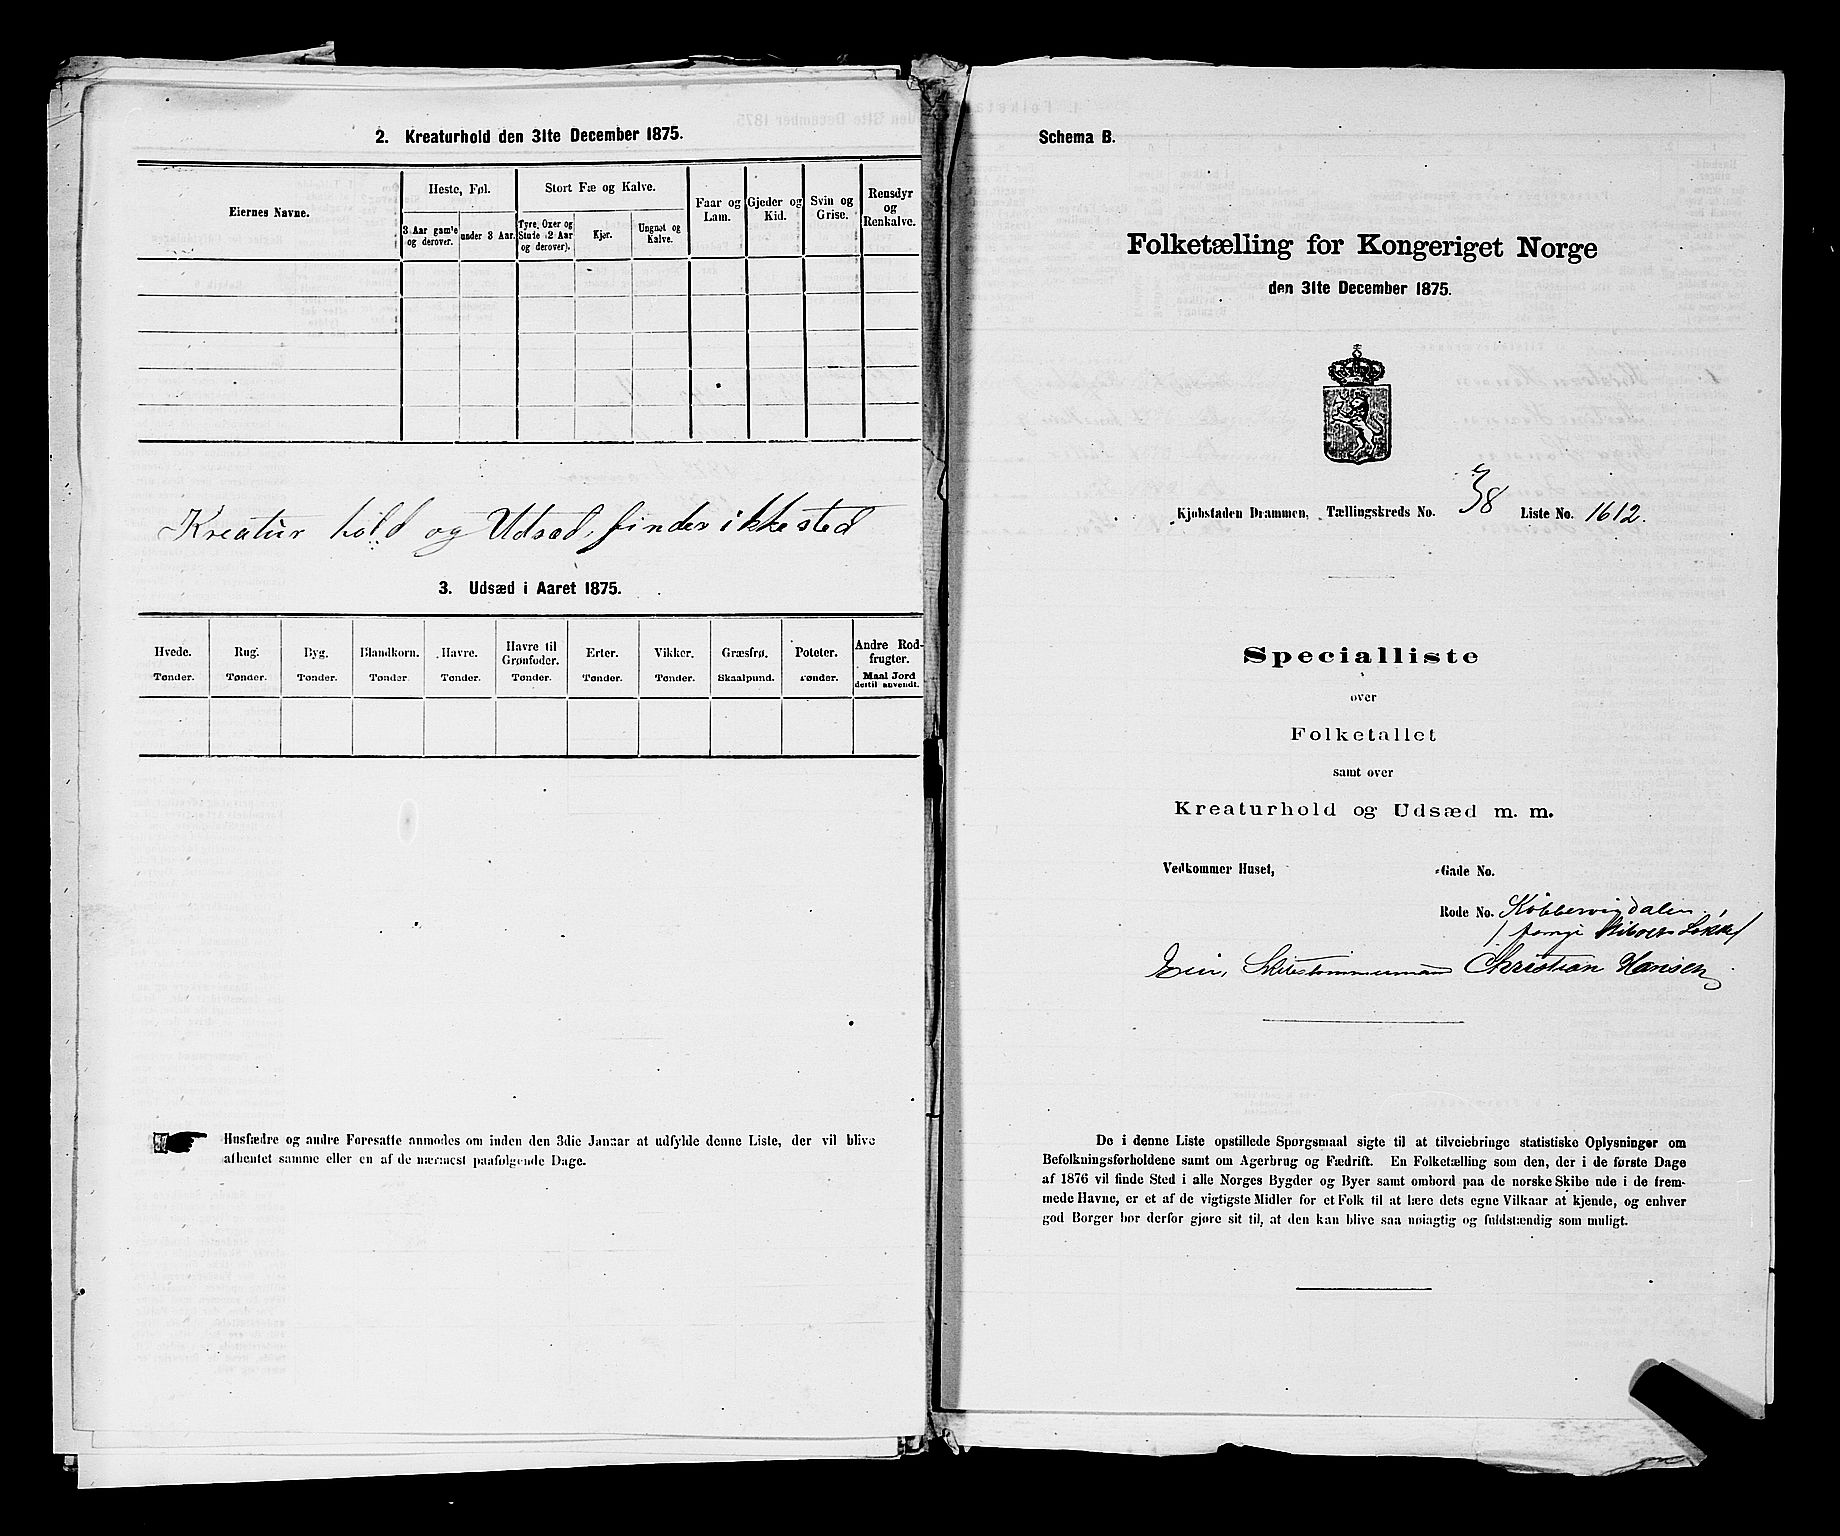 2. Kreaturhold den 31te December 1875.
Eiernes Navne.
Heste, Føl.
Stort Fæ og Kalve.
Faar og Lam.
Gjeder og Kid.
Svin og Grise.
Rensdyr og Renkalve.
3 Aar gamle og derover.
under 3 Aar.
Tyre, Oxer og Stude (2 Aar og derover).
Kjør.
Ungnøt og Kalve.
Kreatur hold og Udsæd, finder ikke sted
3. Udsæd i Aaret 1875.
Hvede. Rug. Byg. Blandkorn. Havre. Havre til Grønfoder. Erter. Vikker. Græsfrø. Poteter. Andre Rodfrugter.
Tønder. Tønder. Tønder. Tønder. Tønder. Tønder. Tønder. Tønder. Skaalpund. Tønder. Maal Jord dertil anvendt.
Husfædre og andre Foresatte anmodes om inden den 3die Januar at udfylde denne Liste, der vil blive
afhentet samme eller en af de nærmest paafølgende Dage.
Schema B.
Folketælling for Kongeriget Norge
den 31te December 1875.
Kjøbstaden Drammen, Tællingskreds No. 38 Liste No. 1612.
Specialliste
over
Folketallet
samt over
Kreaturhold og Udsæd m. m.
Vedkommer Huset, Gade No.
Rode No. Kobbervigdalen,
Christian Hansen
De i denne Liste opstillede Spørgsmaal sigte til at tilveiebringe statistiske Oplysninger om
Befolkningsforholdene samt om Agerbrug og Fædrift. En Folketælling som den, der i de første Dage
af 1876 vil finde Sted i alle Norges Bygder og Byer samt ombord paa de norske Skibe ude i de frem-
mede Havne, er et af de vigtigste Midler for et Folk til at lære dets egne Vilkaar at kjende, og enhver
god Borger bør derfor gjøre sit til, at den kan blive saa nøiagtig og fuldstændig som muligt.